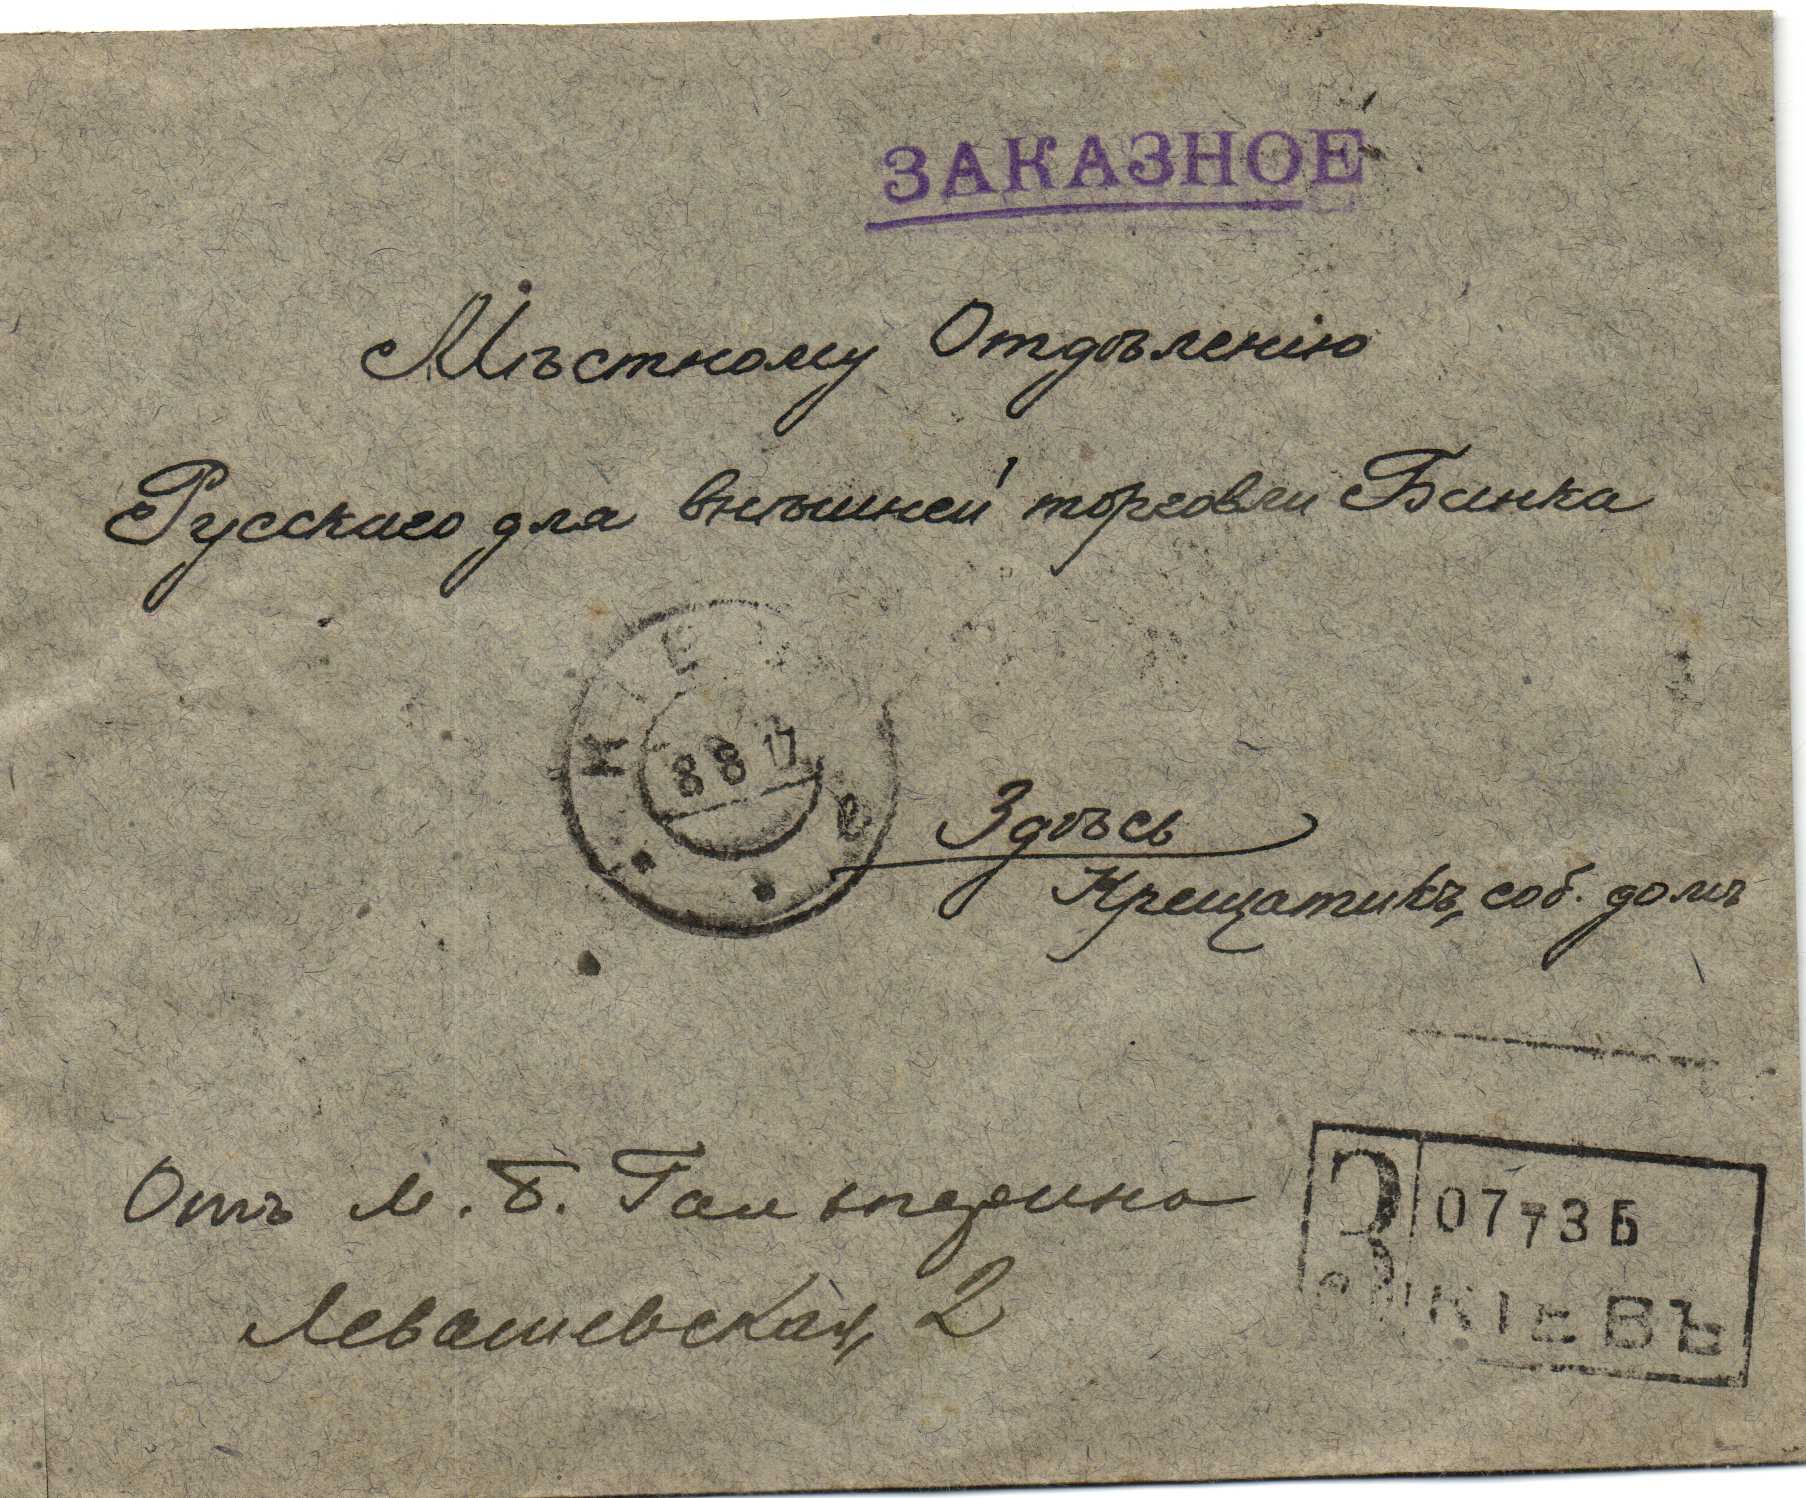 ЗАКАЗНОЕ
Мѣстному Отдѣленію
Русскаго для внѣшней торговли Банка
КІЕ
8 8 17
Здѣсь
Крещатикъ, соб. домъ
Отъ М. Б. Гальперина
Левашевская, 2
З 07735
КІЕВЪ